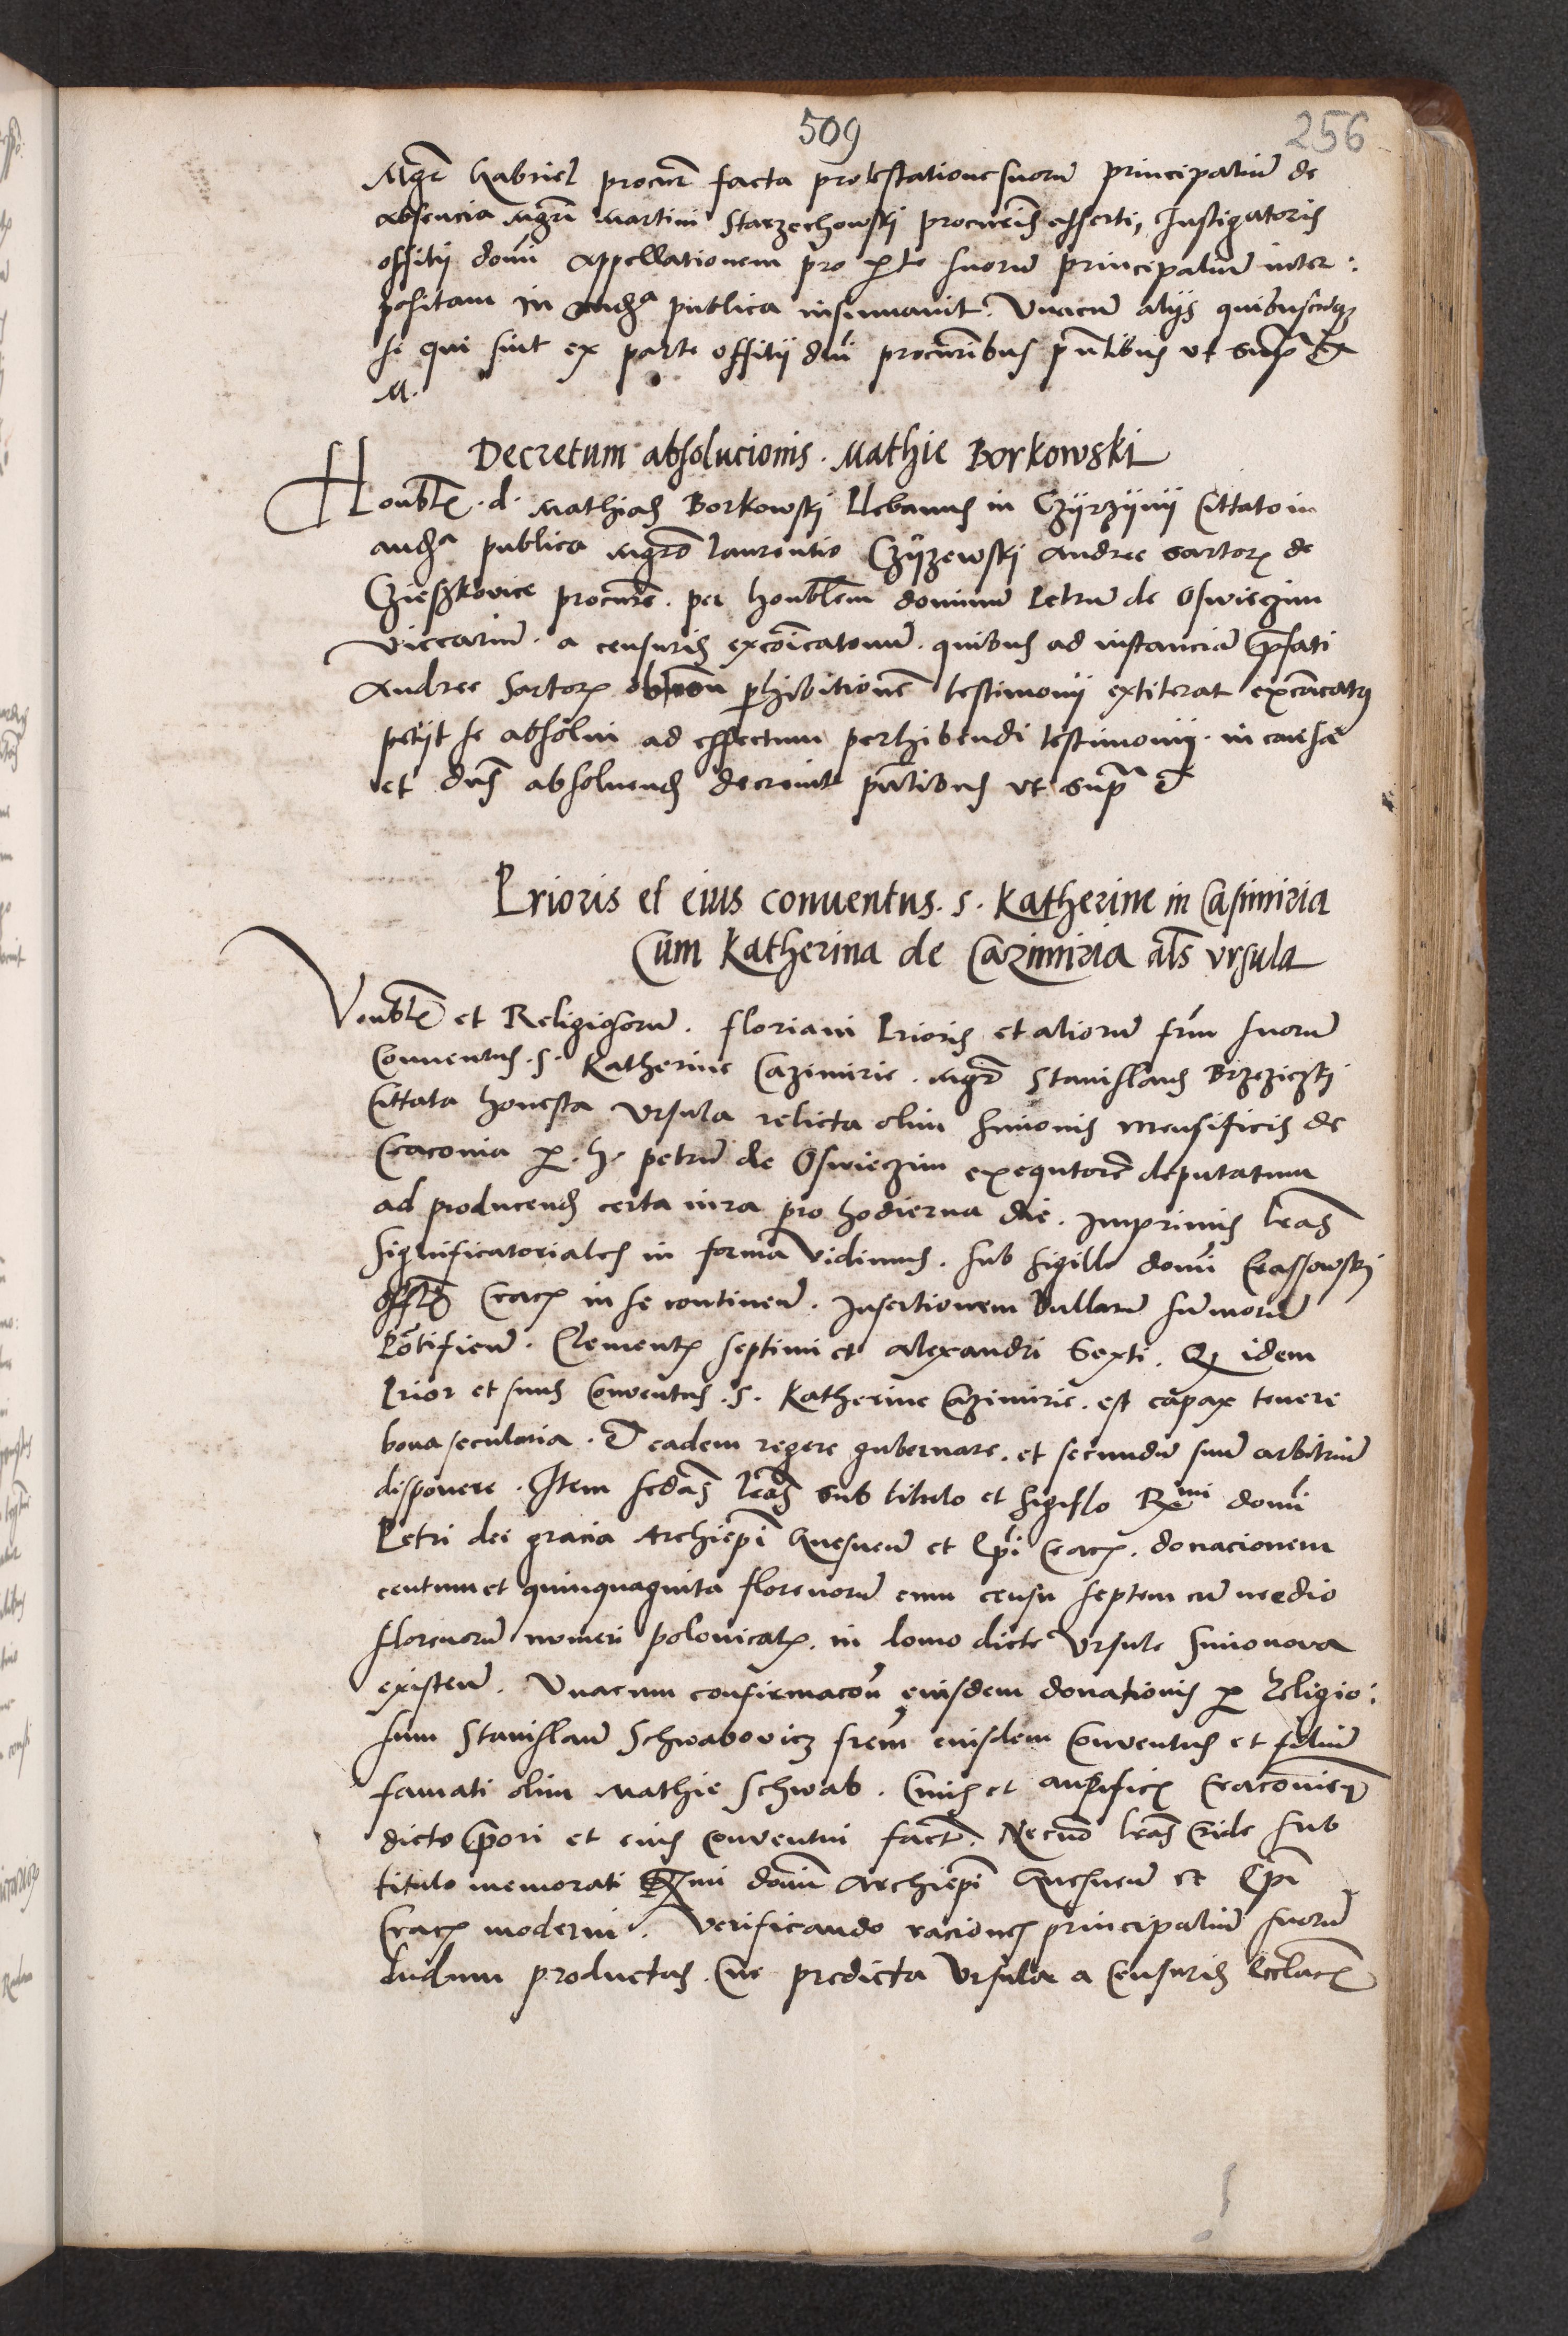 509
256
Mgr Gabriel procur facta protestatione suorum principalium de
absencia mgri Martini Starzechowski procuris asserti, Instigatoris
offitii domi appellationem pro pte suorum principalium inter:
positam in audia publica insinuavit. Vnacum aliis quibuscunque
se qui sint ex parte offitii dni procuribus pntibus vt supra &
M.
Decretum absolucionis. Mathie Borkowski
Honblis. d. Mathias Borkowski Plebanus in Czyrzyny Cittato in
audia publica mgro Laurentio Czyzewski Andree sartoris de
Czieszkovice procure. per honblem dominum Petrum de Oswieczim
viccarium. a censuris excoicatonum. quibus ad instanciam prefati
Andree Sartoris ob non perhibitionem testimonii extiterat excoicatus
petiit se absolui ad effectum perhibendi testimonii. in causa
et dns absoluend decreuit pntibus vt supra &
Prioris et eius conuentus. S. Katherine in Casimiria
Cum Katherina de Cazimiria als Vrsula
Venblis et Religiosorum. Floriani Prioris et aliorum frm suorum
Conuentus. S. Katherine Cazimirie. mgr Stanislaus Brzeziczki
Cittata honesta Vrsula relicta olim Simonis mensificis de
Cracouia p. h. petrum de Oswieczim exequtore deputatum
ad producend certa iura pro hodierna die. Imprimis lras
significatoriales in forma Vidimus. sub sigillo domi Crassowski
offlis Crac in se continen. Insertionem Bullarum summorum
Pontificum. Clementis septimi et Alexandri Sexti. Q idem
Prior et suus Conuentus. S. Katherine Cazimirie. est capax tenere
bona secularia. & eadem regere gubernare. et secundum suum arbitrium
disponere. Item secdas lras sub titulo et sigillo Rmi domi
Petri dei gracia Archiepi Gnesnen et Epi Crac. donacionem
centum et quinquaginta florenorum cum censu septem cum medio
florenorum numeri polonicalis. in domo dicte Vrsule Simonova
existen. Vnacum confirmacon eiusdem donationis p Religio:
sum Stanislaum Schwabovicz frem eiusdem Conventus et filium
famati olim Mathie Schwab. Civis et aurificis Cracovien
dicto Priori et eius conventui fact. Necno lras Eide sub
titulo memorati Rmi domi Archiepi Gnesnen et Epi
Crac moderni. Verificando raciones principalium suorum
dudum productas. Cur predicta Vrsula a Censuris Ecclacis